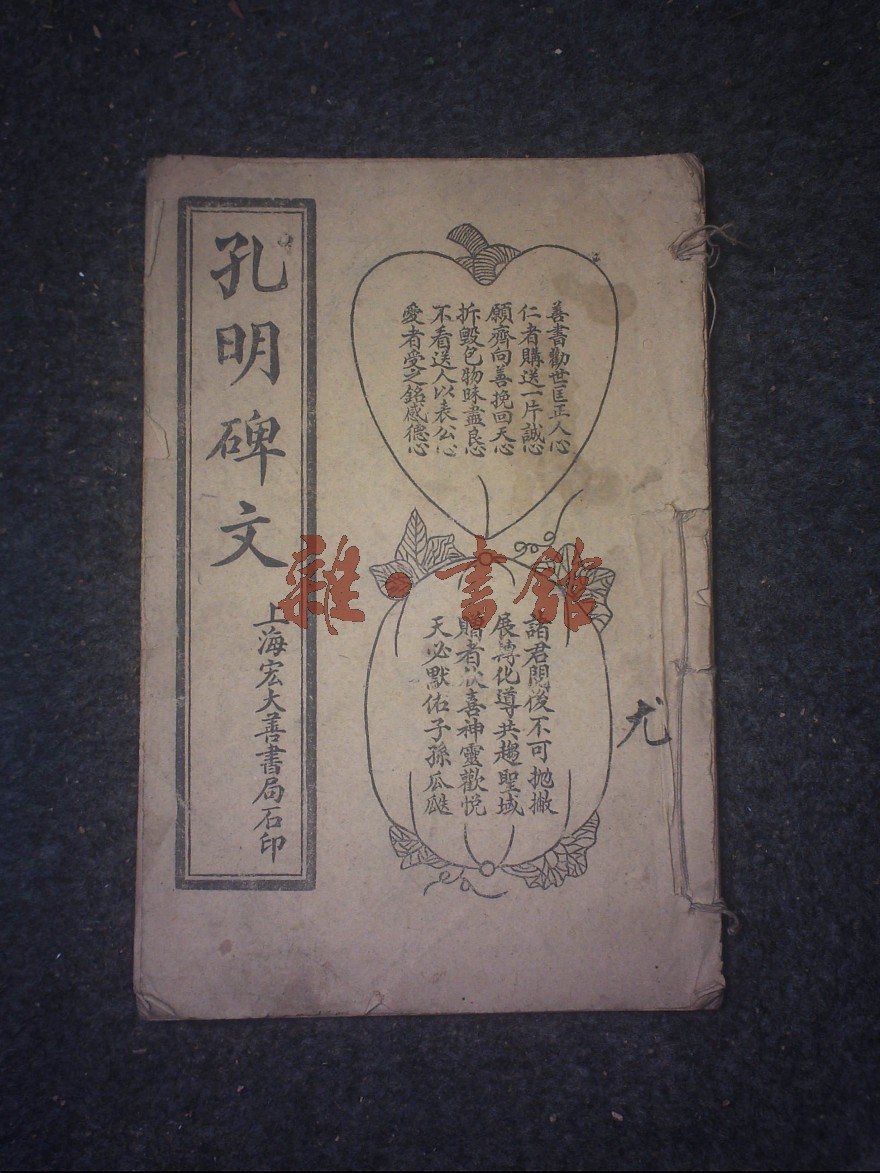 尤
善書勸世匡正人心
仁者購送一片誠心
願齊向善挽回天心
拆毀包物昧盡良心
不看送人以表公心
愛者受之銘感德心
諸君閱後不可拋撇
展轉化導共趨聖域
贈者喜神靈歡悅
天必默佑子孫瓜瓞
孔明碑文
上海宏大善書局石印
雜·書館